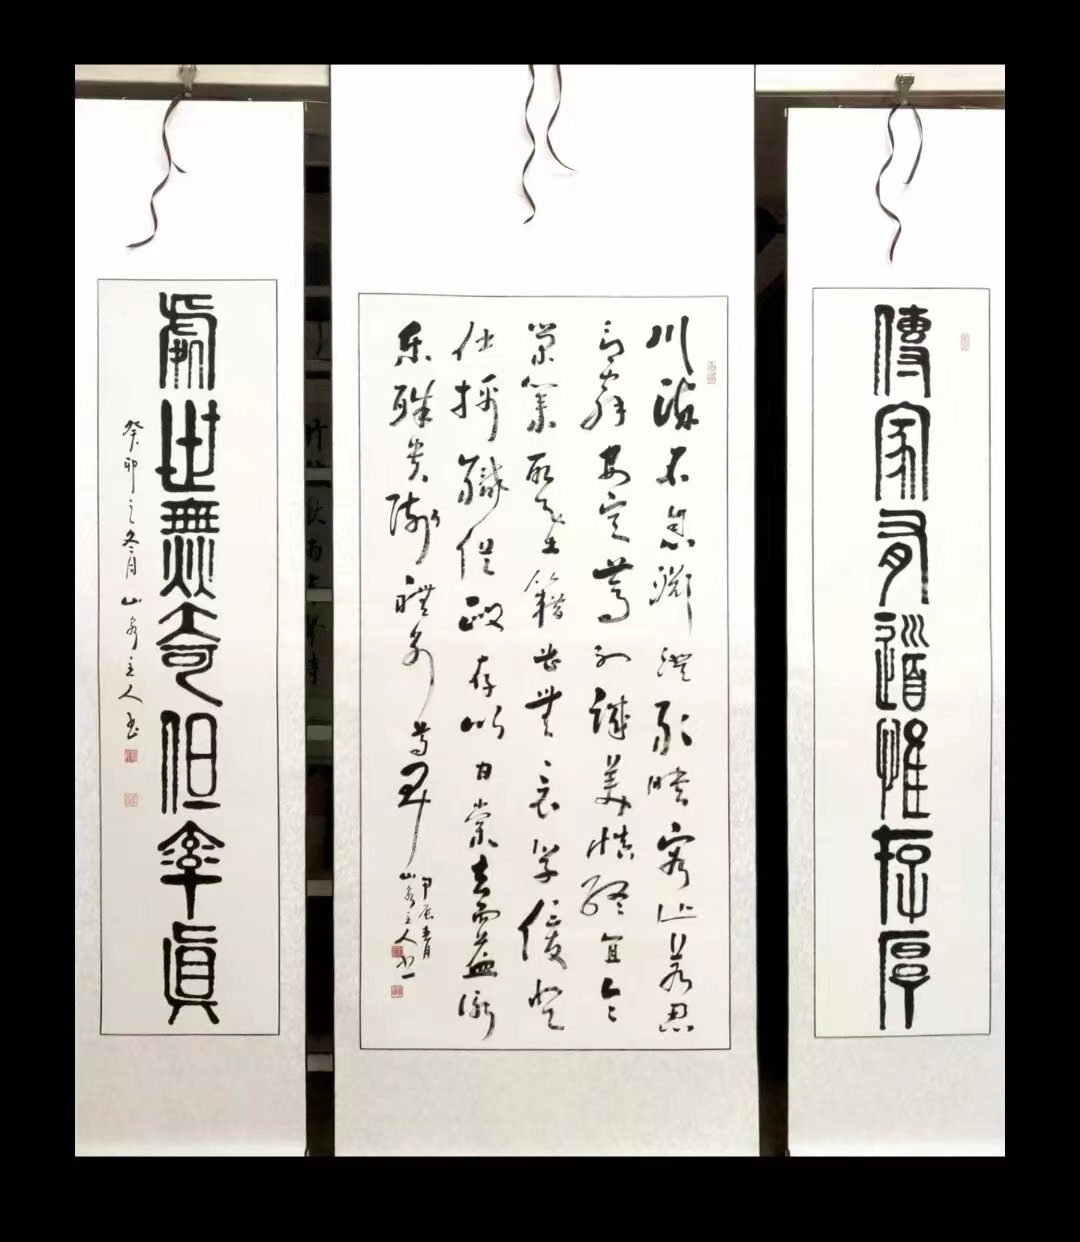 傳家有道惟存厚
川流不息淵澄取映容止若思
言辭安定篤初誠美慎終宜令
榮業所基籍甚無竟學優登
仕攝職從政存以甘棠去而益詠
樂殊貴賤禮別尊卑
甲辰春月
山泉主人書
處世無奇但率真
癸卯之冬月山泉主人書